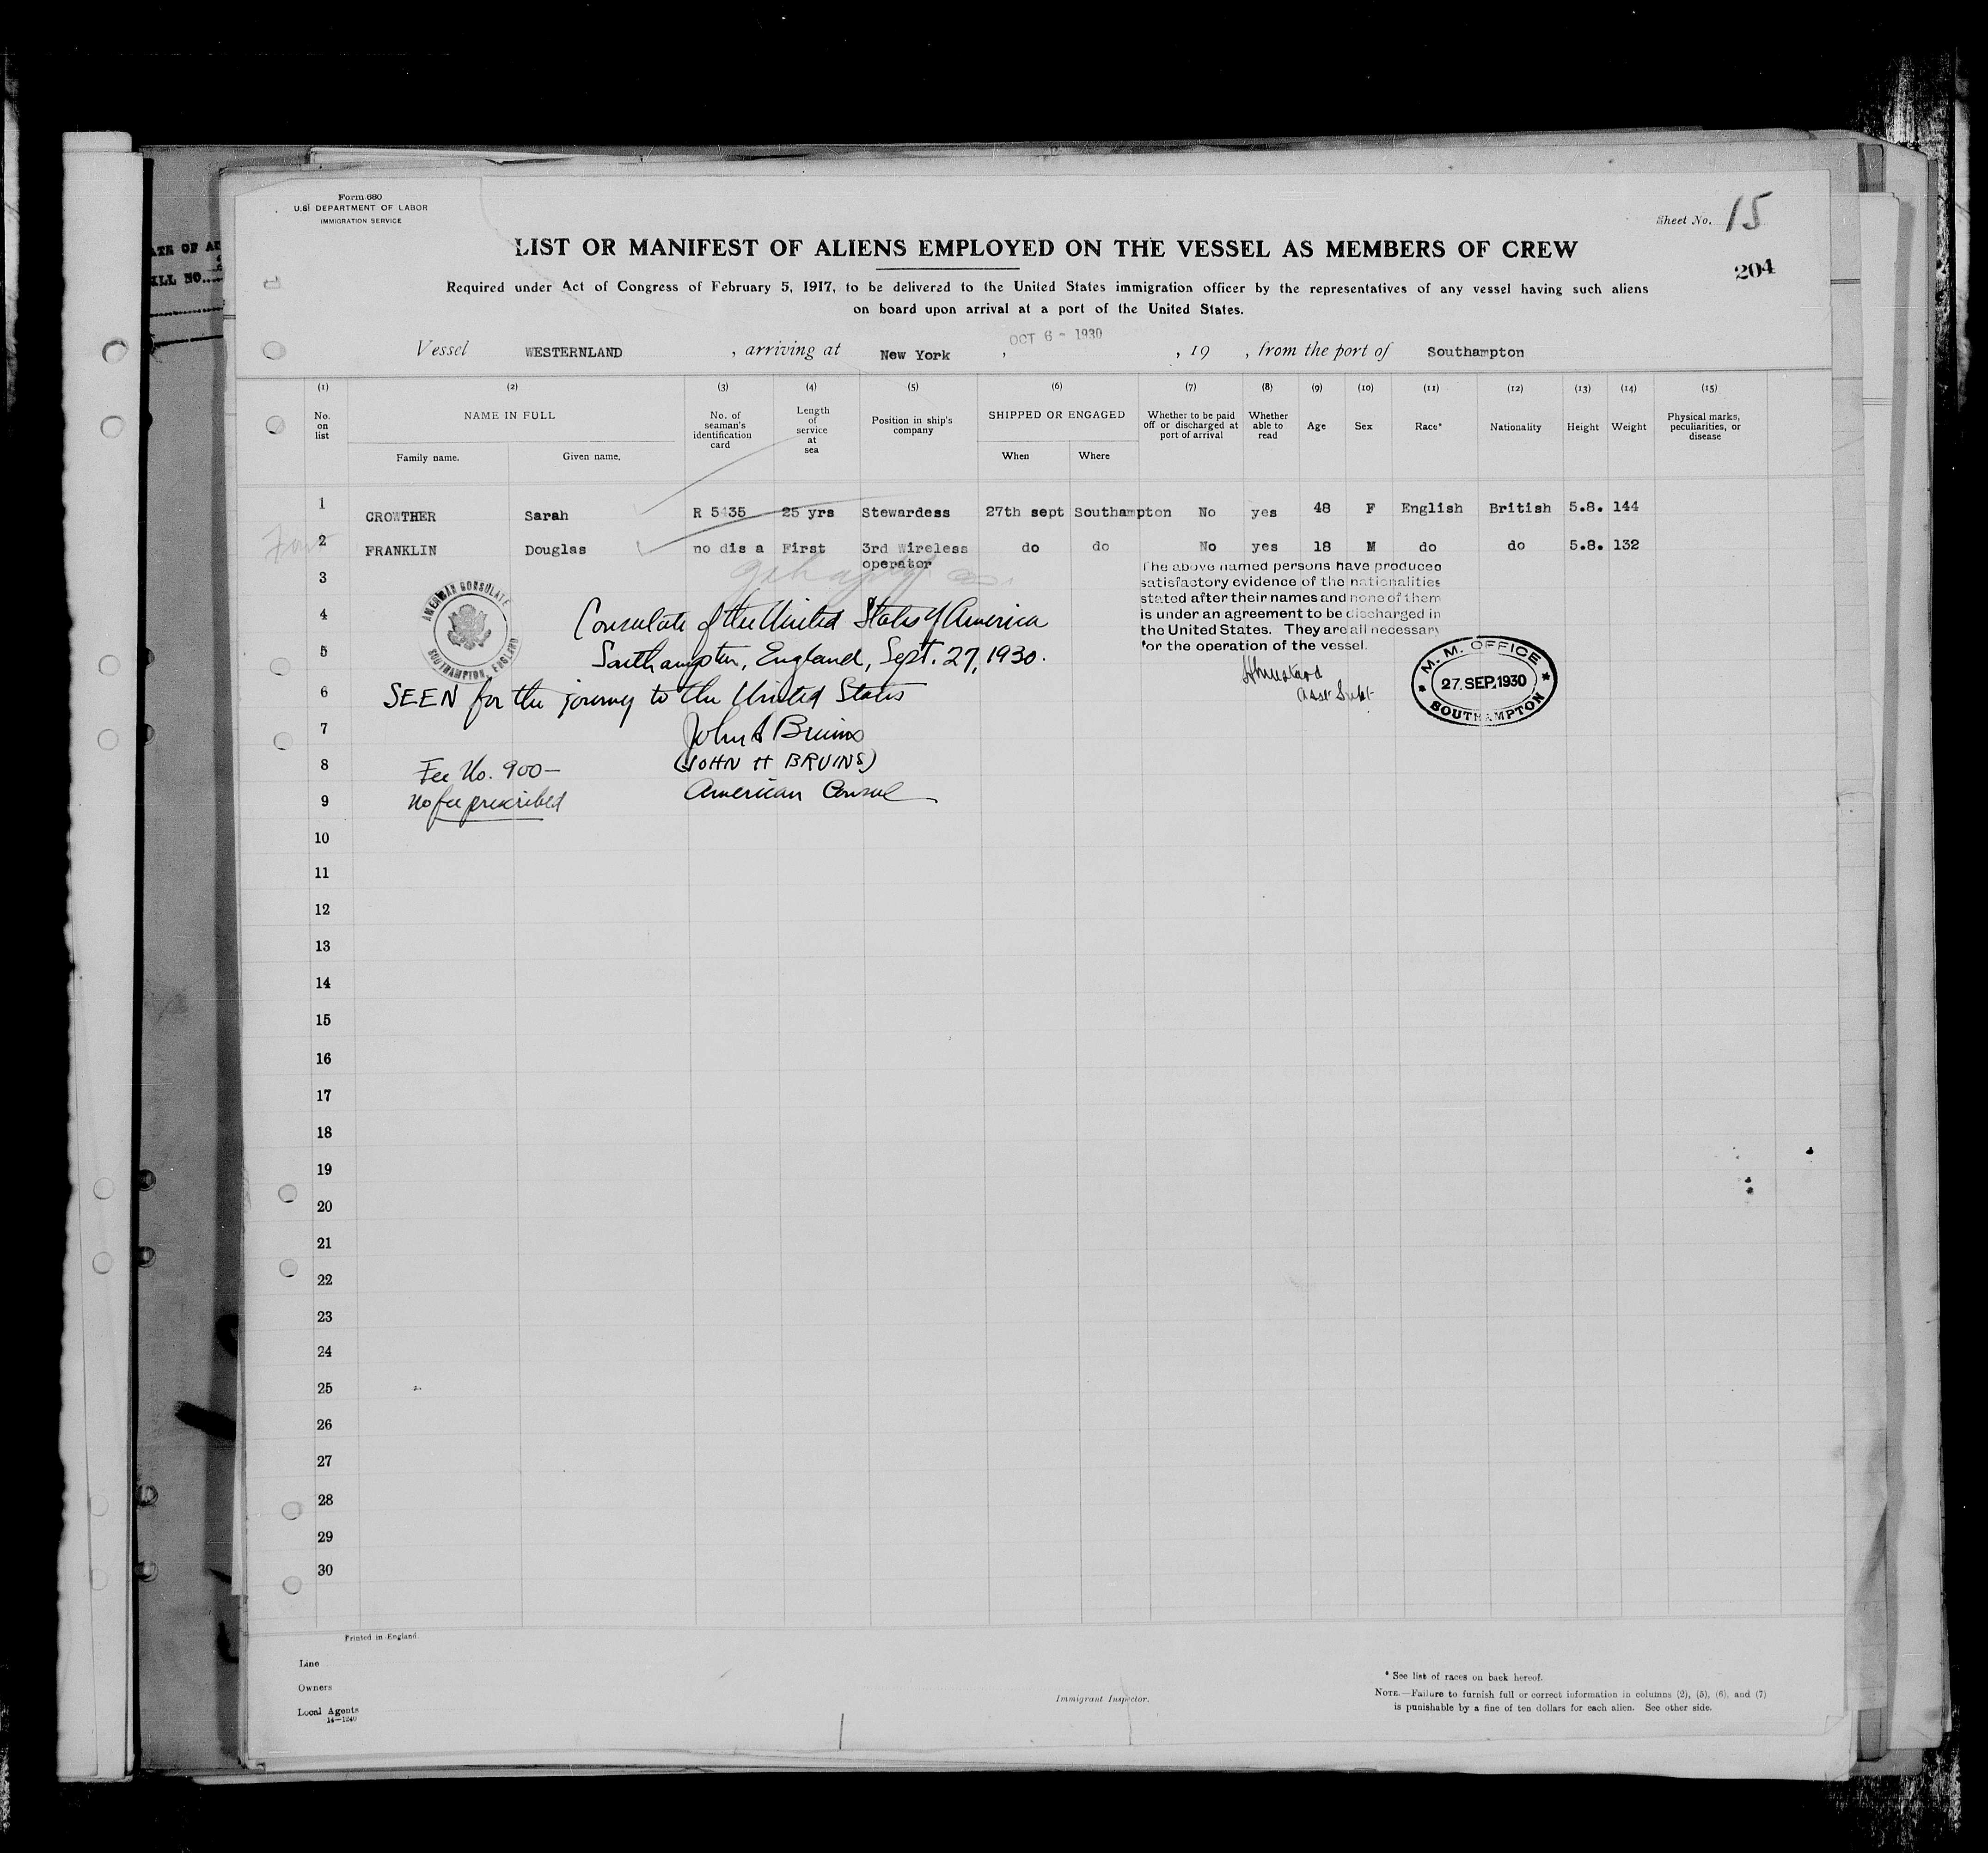 ATE OF AR
ILL NO....
Form 680
U.S. DEPARTMENT OF LABOR
IMMIGRATION SERVICE
Sheet No. 15
LIST OR MANIFEST OF ALIENS EMPLOYED ON THE VESSEL AS MEMBERS OF CREW
204
Required under Act of Congress of February 5, 1917, to be delivered to the United States immigration officer by the representatives of any vessel having such aliens
on board upon arrival at a port of the United States.
Vessel WESTERNLAND , arriving at New York , OCT 6 - 1930 , 19 , from the port of Southampton
(1) (2) (3) (4) (5) (6) (7) (8) (9) (10) (11) (12) (13) (14) (15)
No. on list NAME IN FULL No. of seaman's identification card Length of service at sea Position in ship's company SHIPPED OR ENGAGED Whether to be paid off or discharged at port of arrival Whether able to read Age Sex Race* Nationality Height Weight Physical marks, peculiarities, or disease
Family name. Given name. When Where
1 CROWTHER Sarah R 5435 25 yrs Stewardess 27th sept Southampton No yes 48 F English British 5.8. 144
2 FRANKLIN Douglas no dis a First 3rd Wireless operator do do No yes 18 M do do 5.8. 132
3
4
5
6
7
8
9
10
11
12
13
14
15
16
17
18
19
20
21
22
23
24
25
26
27
28
29
30
The above named persons have produced
satisfactory evidence of the nationalities
stated after their names and none of them
is under an agreement to be discharged in
the United States. They are all necessary
for the operation of the vessel.
Asst Supt
M. M. OFFICE
27. SEP. 1930
SOUTHAMPTON
AMERICAN CONSULATE
SOUTHAMPTON, ENGLAND
Consulate of the United States of America
Southampton, England, Sept. 27, 1930.
SEEN for the journey to the United States
John H Bruins
(JOHN H BRUINS)
American Consul
Fee No. 900—
No fee prescribed
Printed in England.
Line
Owners
Local Agents
14—1240
Immigrant Inspector.
* See list of races on back hereof.
NOTE.—Failure to furnish full or correct information in columns (2), (5), (6), and (7)
is punishable by a fine of ten dollars for each alien. See other side.